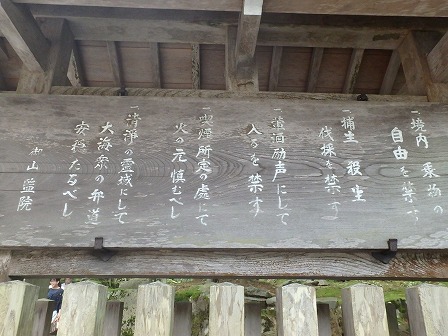 一境内 乗物の
自由を禁ず
一捕生 殺生
伐採を禁ず
一葷酒励声にして
入るを禁ず
一喫煙所定の處にて
火の元慎むべし
一清浄の霊域にして
大海衆の弁道
安穏たるべし
本山監院